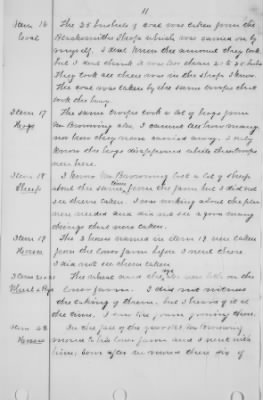 11
Item 16 The 25 bushels of coal was taken from the
Coal Blacksmiths Shop which was carried on by
myself. I dont know the amount they took
but I dont think it was less than 20 to 25 bushels
They took all there was in the shop I know.
The coal was taken by the same troops that
took the
Item 17 The same troops took a lot of hogs from
Hogs Mr Browning also, I cannot tell how many
nor how they were carried away. I only
know the hogs disappeared while the troops
were here.
Item 18 I know Mr Browning lost a lot of sheep
Sheep about the same time from the farm but I did not
see them taken. I was working about the place
were needed and did not see a good many
things that were taken.
Item 19 The 3 horses named in item 19 were taken
Horses from the lower farm before I went there
I did not see them taken
The wheat and rye were both on the
Wheat & Rye lower farm. I did not witness
the taking of them, but I heard of it at
the time. I saw the growing there.
Item 23 In the fall of the year Mr Browning
Houses moved to his lower farm and I went with
him. Soon after we moved there six of